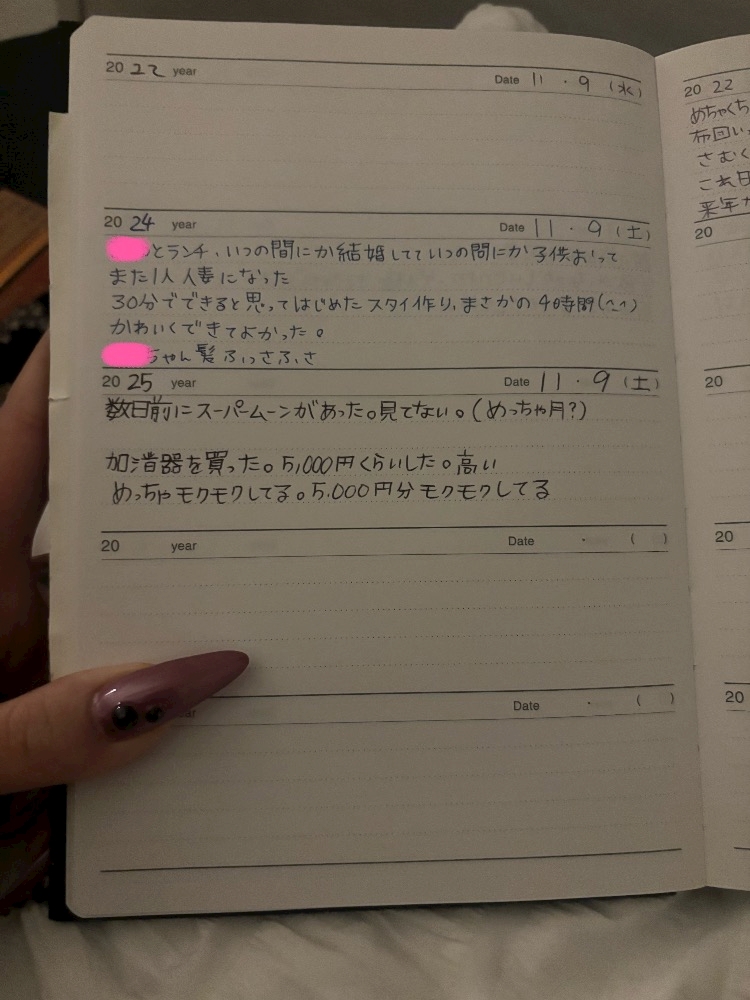 20 22 year Date 11 . 9 (水)
20 24 year Date 11 . 9 (土)
とランチ、いつの間にか結婚してていつの間にか子供おって
また1人人妻になった
30分でできると思ってはじめたスタイ作り、まさかの4時間(^_^)
かわいくできてよかった。
ちゃん髪ふっさふさ
20 25 year Date 11 . 9 (土)
数日前にスーパームーンがあった。見てない。(めっちゃ月?)
加湿器を買った。5,000円くらいした。高い
めっちゃモクモクしてる。5.000円分モクモクしてる
20 year Date . ( )
Date . ( )
20 22
めちゃくち
布団い
さむく
これ日
来年
20
20
20
20